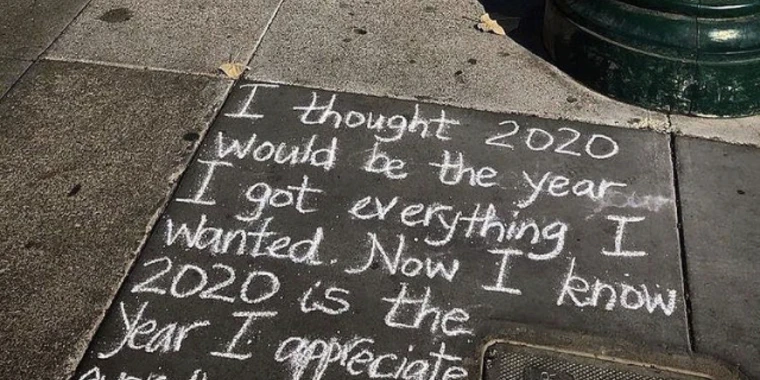 I thought 2020
would be the year
I got everything I
wanted. Now I know
2020 is the
year I appreciate